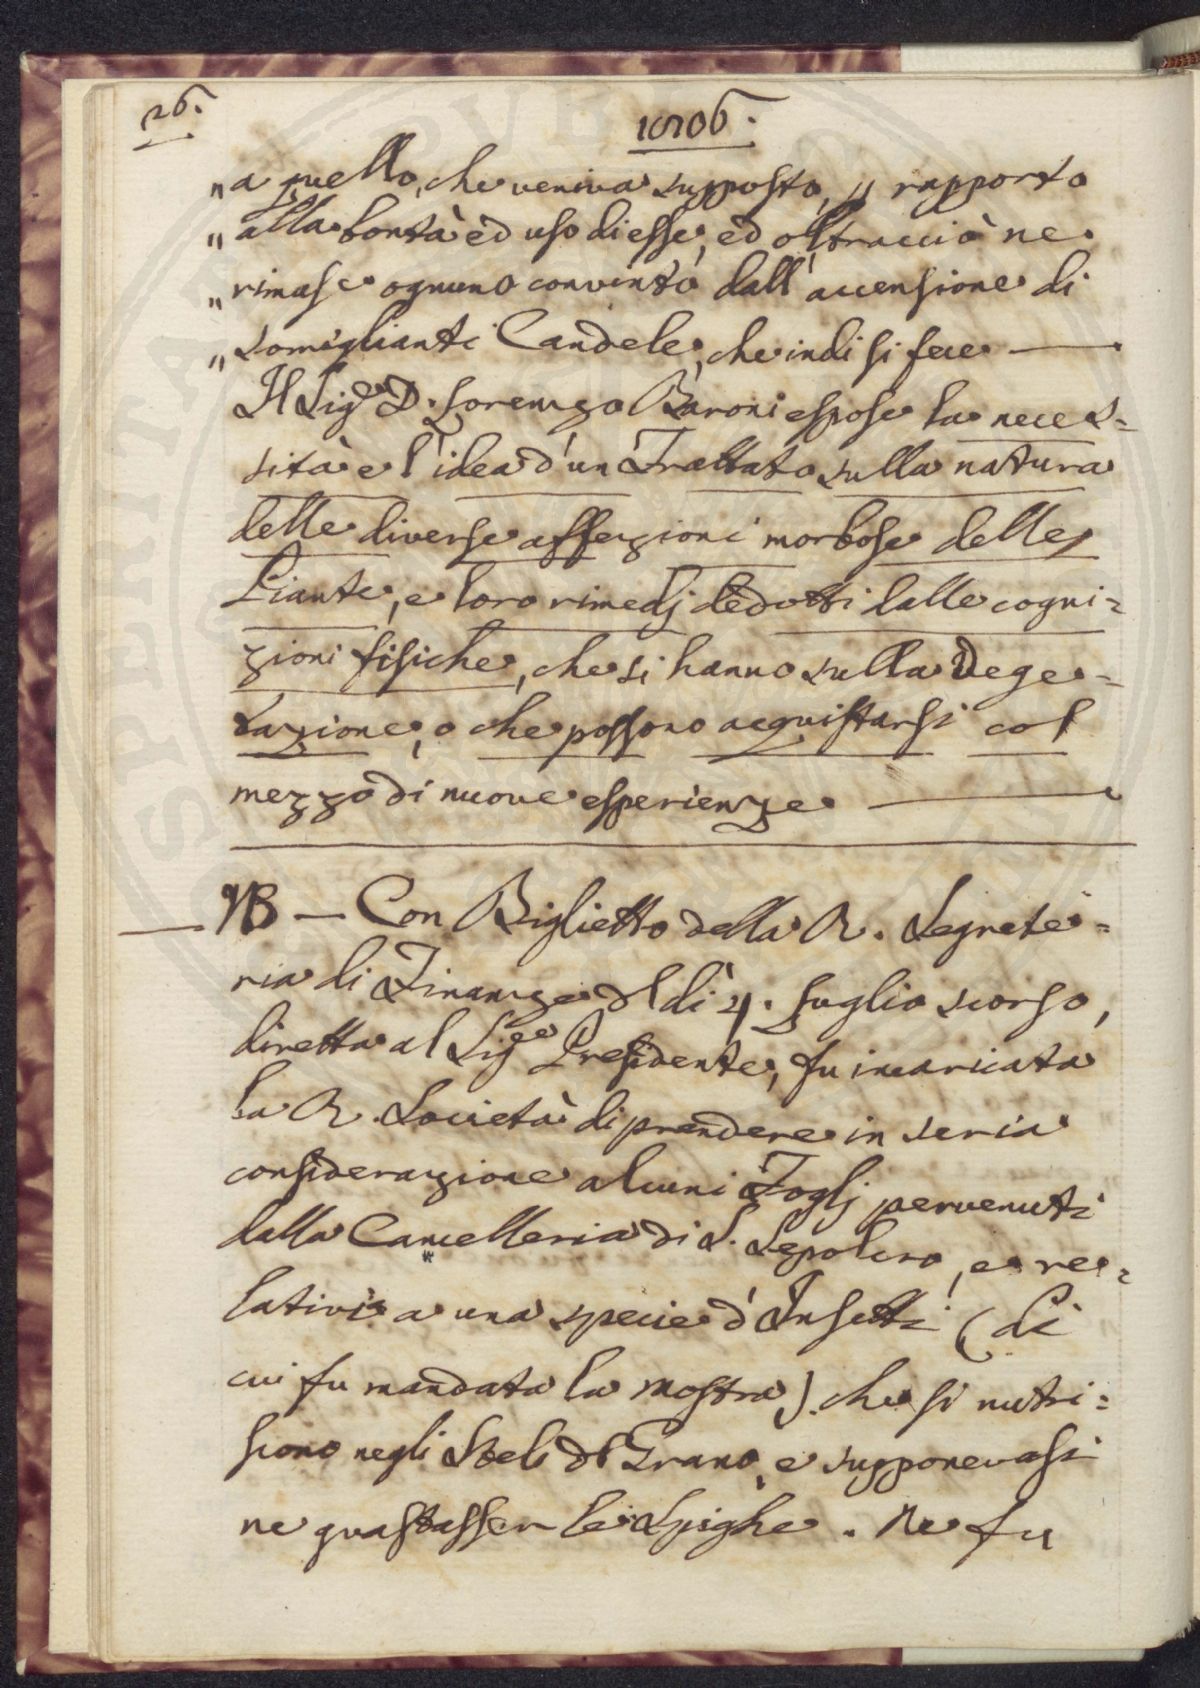 26.
1806.
„ a quello, che veniva supposto, „ rapporto
„ alla bontà ed uso di esse, ed oltracciò ne
„ rimase ognuno convinto dall'accensione di
„ somiglianti Candele, che indi si fece —
Il Sig.e D. Lorenzo Baroni espose la neces=
sità e l'idea d'un Trattato sulla natura
delle diverse affezioni morbose delle
Piante, e loro rimedj dedotti dalle cogni=
zioni fisiche, che si hanno sulla Vege=
tazione, o che possono acquistarsi col
mezzo di nuove esperienze —
— NB — Con Biglietto della R. Segrete=
ria di Finanze del dì 4. Luglio scorso,
diretto al Sig.e Presidente, fu incaricata
la R. Società di prendere in seria
considerazione alcuni Foglj pervenuti
dalla Cancelleria di S. Sepolcro, e re=
lativi a una specie d'Insetti (di
cui fu mandata la mostra). che si nutri=
scono negli Steli del Grano, e supponevasi
ne guastasser le Spighe. Ne fu